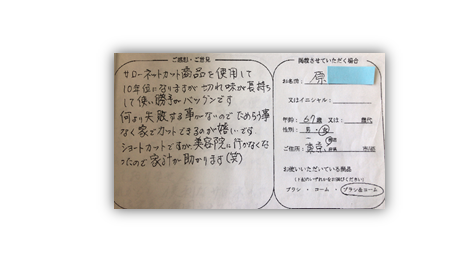 ご感想・ご意見
サローネットカット商品を使用して
10年位になりますが切れ味が長持ち
して使い勝手がバツグンです
何より失敗する事がないのでためらう事
なく家でカットできるのが嬉しいです
ショートカットですが、美容院に行かなくな
ったので家計が助かります(笑)
掲載させていただく場合
お名前: 原
又はイニシャル:
年齢: 67歳 又は: 歳代
性別: 男・女
ご住所: 東京
お使いいただいている商品
(下記のいずれかをお選びください)
ブラシ ・ コーム ・ ブラシ&コーム